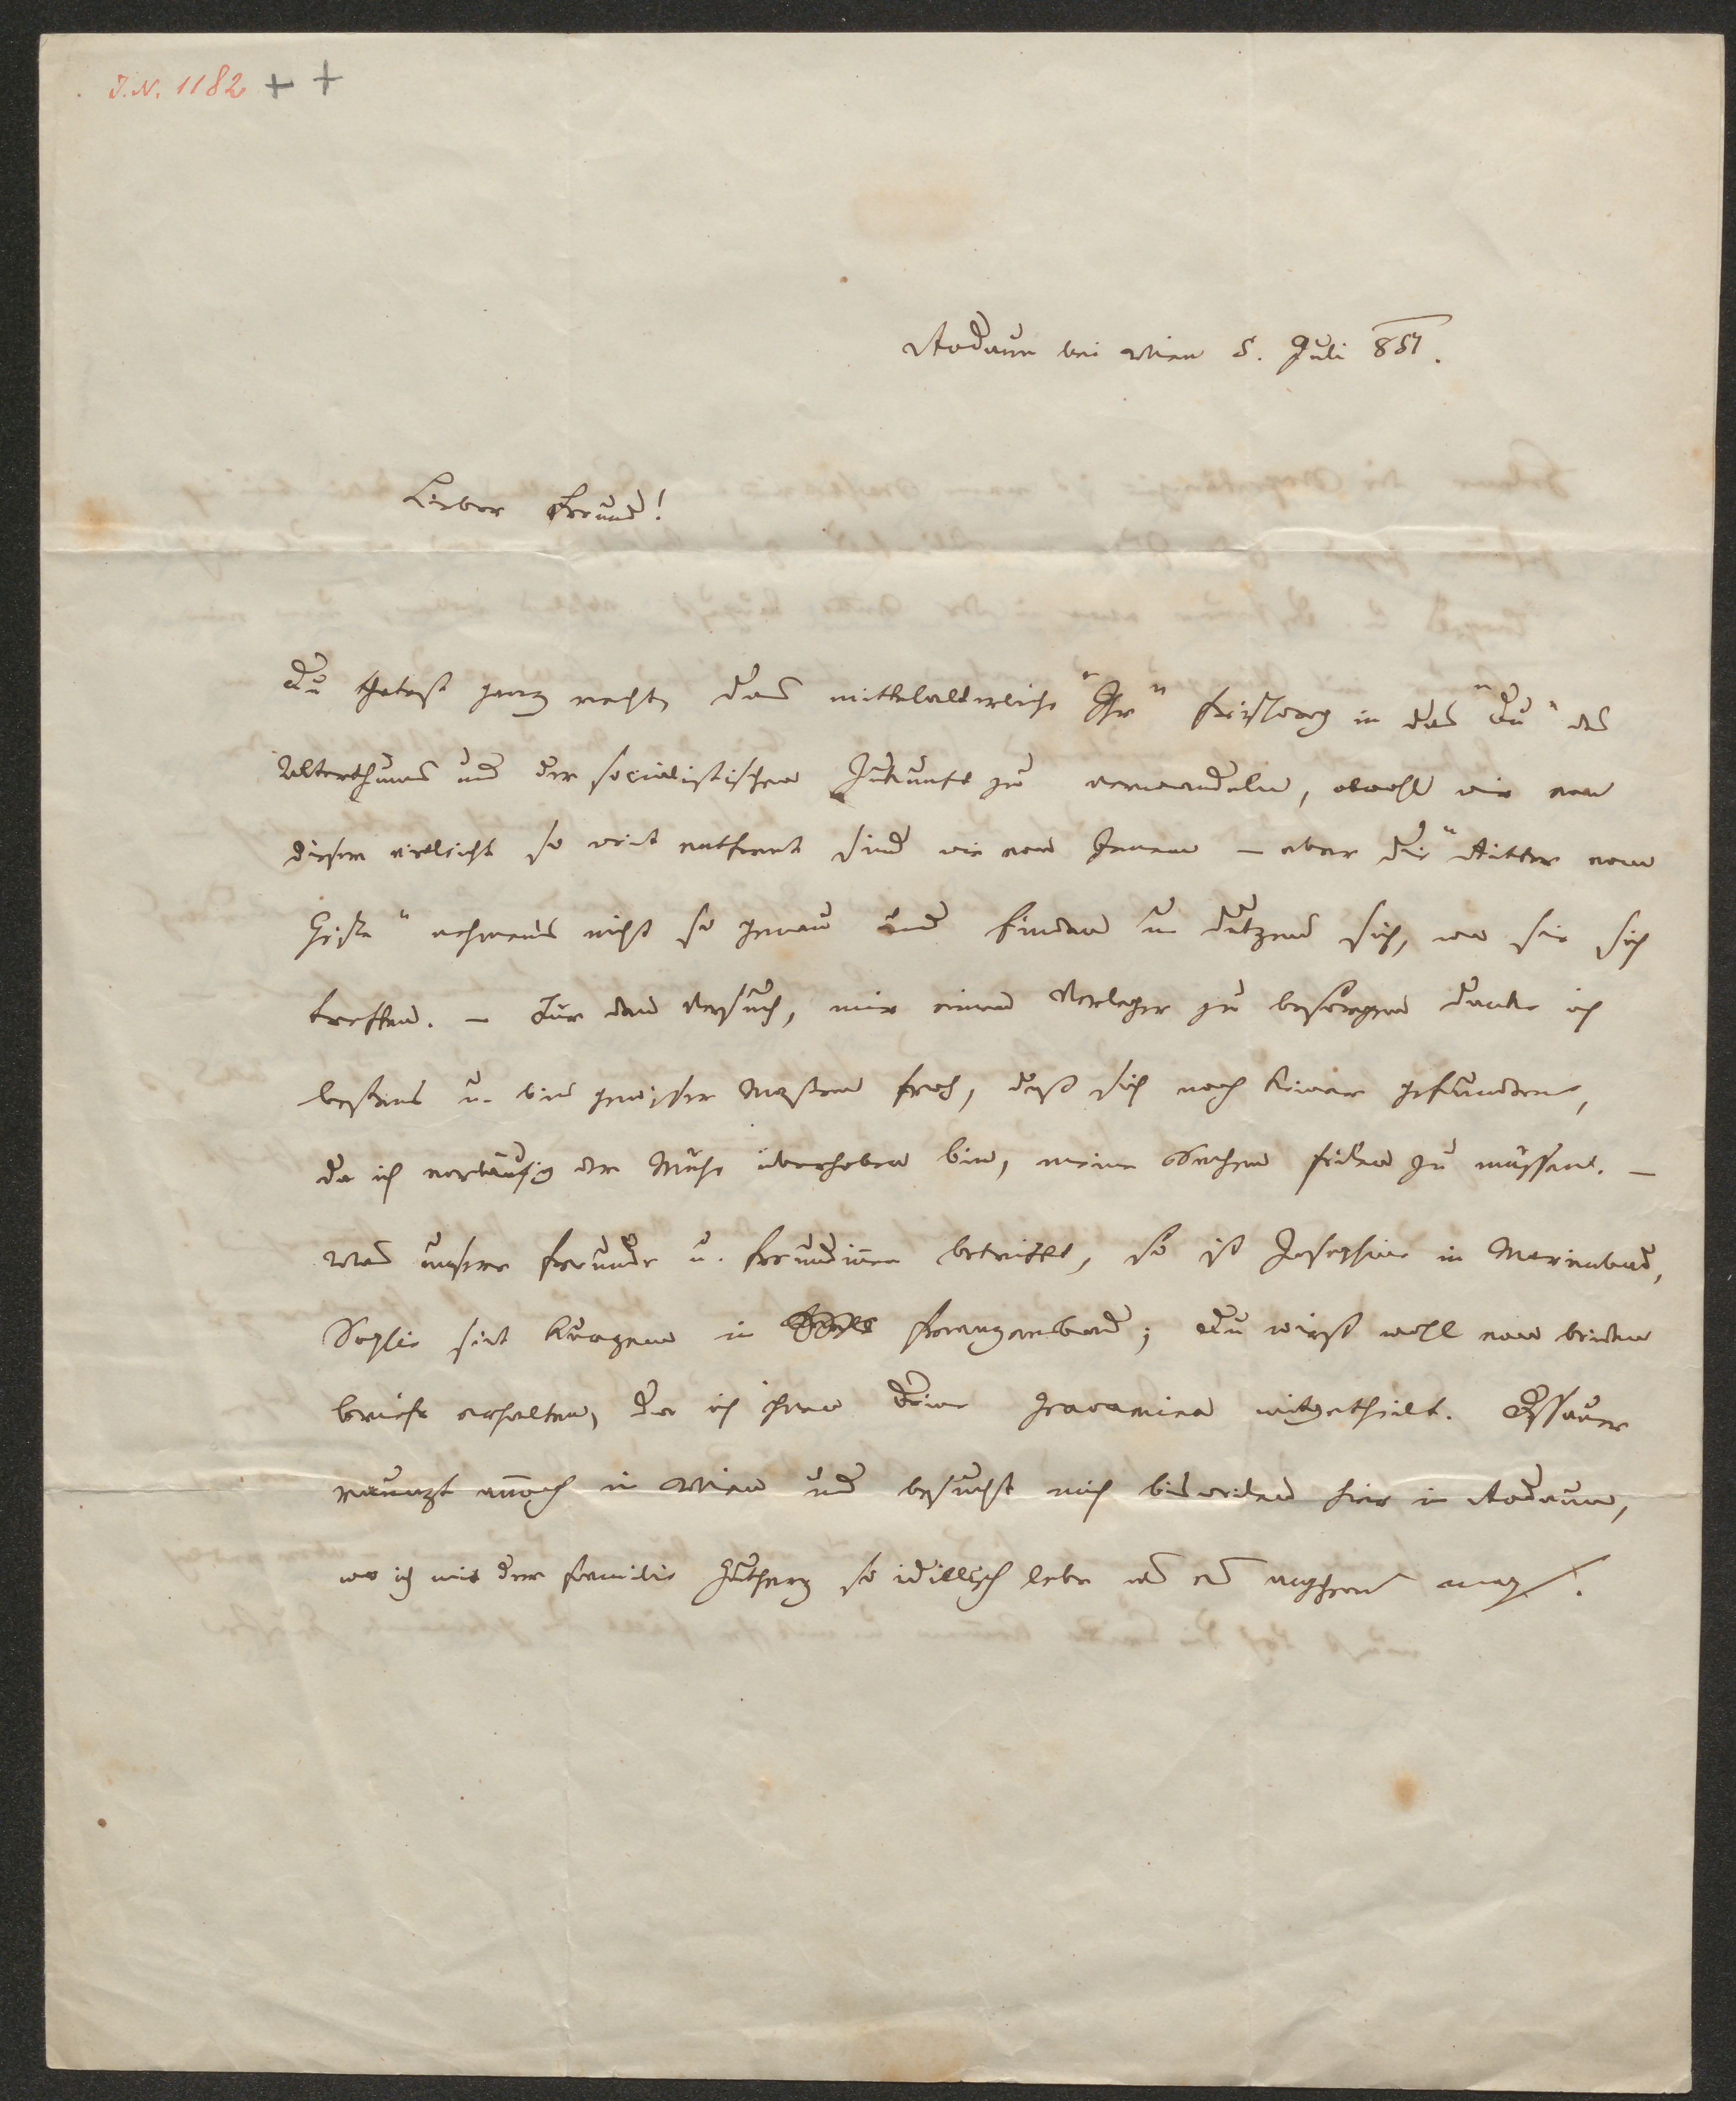 J.N. 1182 + +
Rodaun bei Wien 5. Juli 851.
Lieber Freund!
Du thatest ganz recht, das mittelalterliche "Ihr" frischweg in das "Du" des
Alterthums und der socialistischen Zukunft zu verwandeln, obwohl wir von
dieser vielleicht so weit entfernt sind wie von Jenem – aber die "Ritter vom
Geiste" nehmens nicht so genau und finden u. dutzend sich, wo sie sich
treffen. – Für den Versuch, mir einen Verleger zu besorgen danke ich
bestens u. bin gewisser Maßen froh, daß sich noch keiner gefunden,
da ich vorläufig der Mühe überhoben bin, meine Sachen feilen zu müssen. –
Was unsere Freunde u. Freundinen betrifft, so ist Josephine in Marienbad,
Sophie seit Kurzem in Franzensbad; Du wirst wohl von beiden
Briefe erhalten, da ich ihnen Deine Gravamina mitgetheilt. Dessauer
raunzt annoch in Wien und besucht mich bisweilen hier in Rodaun,
wo ich mit der Familie Gutherz so idillisch lebe als es angehen mag.